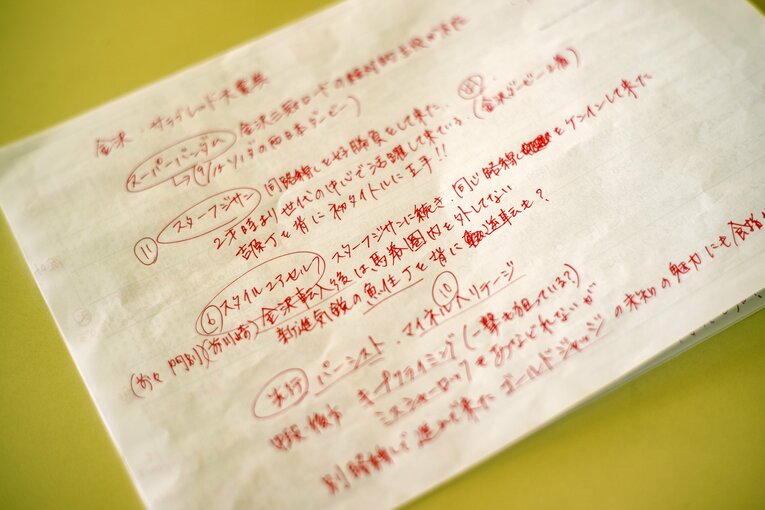 金沢・サラブレッド大賞典
スーパーバンダム 金沢三冠ロードの絶対的主役が不在
(石川ダービー) の西日本ダービー)
⑪ スターフジサン 同路線しを好勝負をして来た。 (金沢ダービー2着)
2才時より世代の中心で活躍して来ている。
吉原丁を背に初タイトルに王手!!
⑥ スタイルユアセルフ スターフジサンに続き、同じ路線 をケンインして来た
(元々 門別)(前川崎) 金沢転入後は、馬券圏内を外してない
新進気鋭の魚住丁を背に 逆転も?
先行 パーシスト・マイネルヘリテージ ⑩
中段・後方 キープクライミング (一撃も狙っている?)
ミスシャーロックもあなどれないが
別路線で進めて来たゴールドジャッジの未知の魅力にも食指